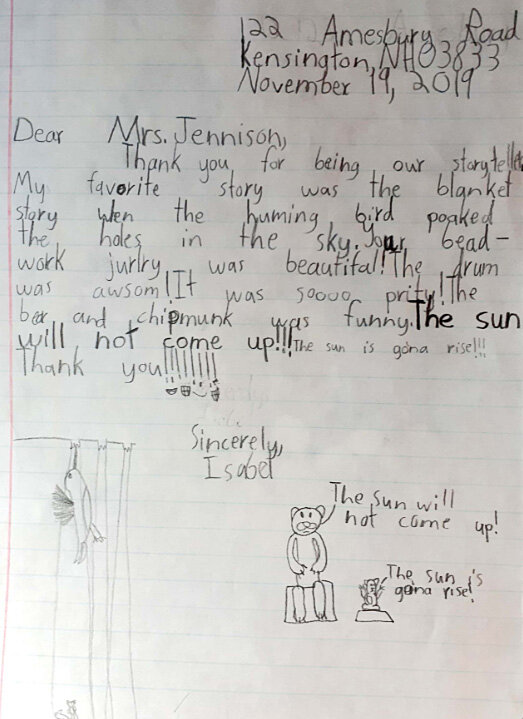 122 Amesbury Road
Kensington, NH 03833
November 19, 2019
Dear Mrs. Jennison,
Thank you for being our storyteller.
My favorite story was the blanket
story when the huming bird poaked
the holes in the sky. Your bead-
work jurlry was beautiful! The drum
was awsom! It was soooo prity! The
ber and chipmunk was funny. The sun
will not come up!!! The sun is gona rise!!!
Thank you!!!!!!!!!
Sincerely,
Isabel
The sun will
not come up!
The sun's
gona rise!